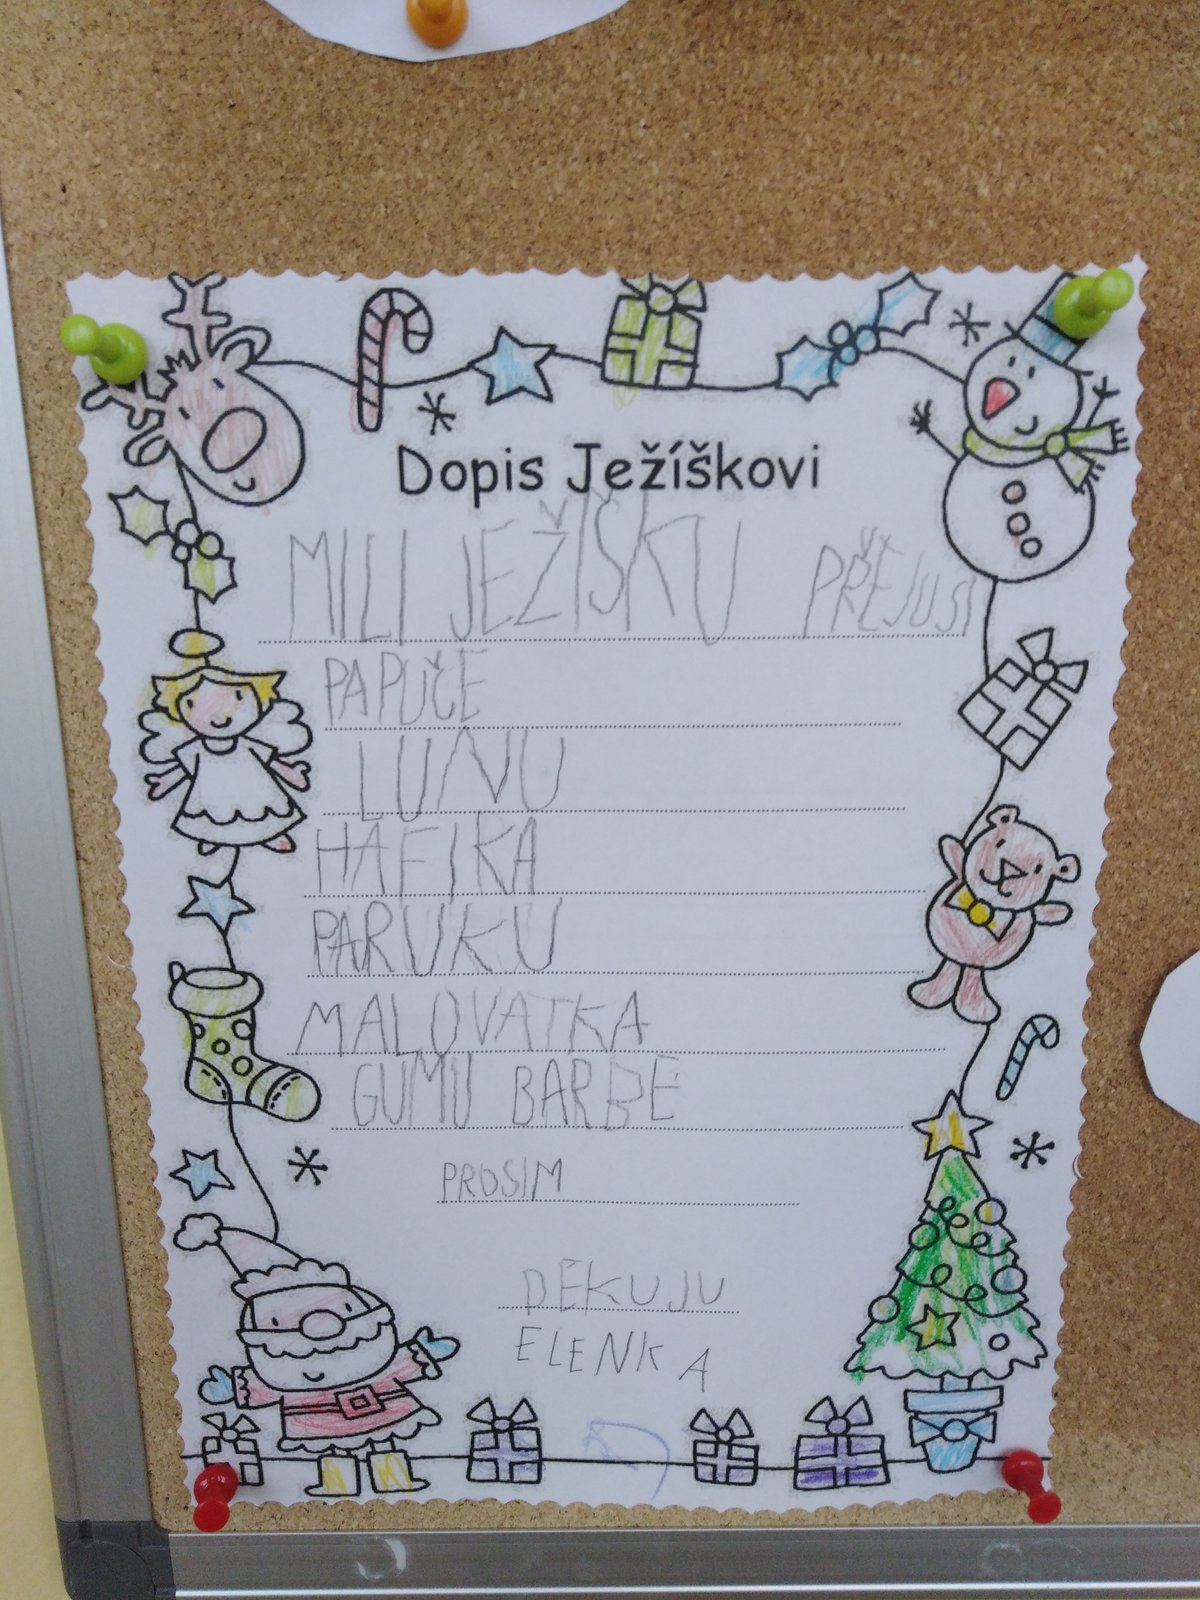 Dopis Ježíškovi
MILI JEŽIŠKU PŘEJUSI
PAPUČE
LUNU
HAFIKA
PARUKU
MALOVATKA
GUMU BARBE
PROSIM
DEKUJU
ELENKA